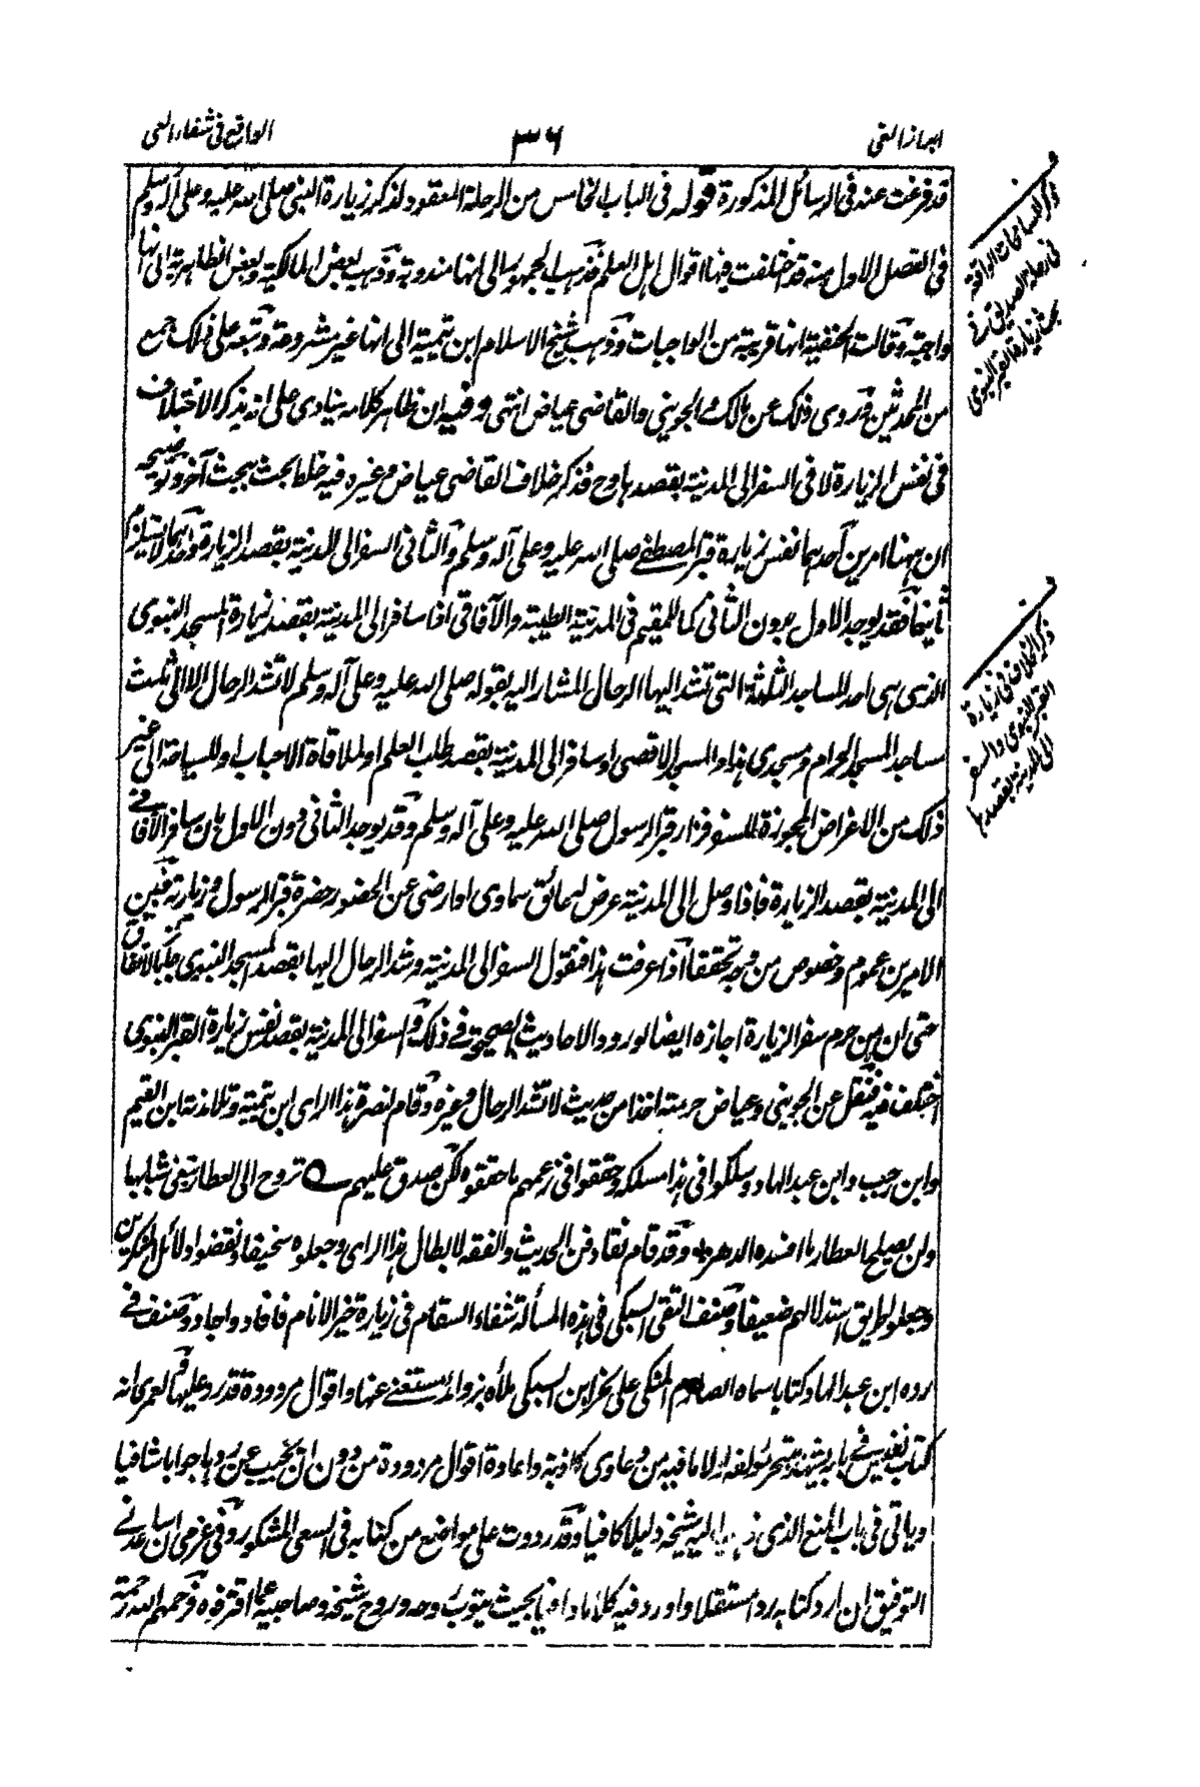 ابراز الغي
٣٦
الواقع في شفاء العي
قد فرغت عنه في الرسائل المذكورة قوله في الباب الخامس من الرحلة المعقود لذكر زيارة النبي صلى الله عليه وعلى آله وسلم
في الفصل الاول منه قد اختلفت فيها اقوال اهل العلم فذهب الجمهور الى انها مندوبة وذهب بعض المالكية وبعض الظاهرية الى انها
واجبة وقالت الحنفية انها قريبة من الواجبات وذهب شيخ الاسلام ابن تيمية الى انها غير مشروعة وتبعه على ذلك جمع
من المحدثين وروى ذلك عن مالك والجويني والقاضي عياض انتهى وفيه ان ظاهر كلامه ينادى على انه يذكر الاختلاف
في نفس الزيارة لا في السفر الى المدينة بقصدها وح فذكر خلاف القاضي عياض وغيره فيه خلط بحث ببحث آخر وتوضيحه
ان ههنا امرين احدهما نفس زيارة قبر المصطفى صلى الله عليه وعلى آله وسلم والثاني السفر الى المدينة بقصد الزيارة واحدهما لا يستلزم
ثانيهما فقد يوجد الاول بدون الثاني كما للمقيم في المدينة الطيبة والآفاقي اذا سافر الى المدينة بقصد زيارة المسجد النبوى
الذى هى احد المساجد الثلثة التي تشد اليها الرحال المشار اليه بقوله صلى الله عليه وعلى آله وسلم لا تشد الرحال الا الى ثلث
مساجد المسجد الحرام ومسجدى هذا والمسجد الاقصى او سافر الى المدينة بقصد طلب العلم او لملاقاة الاحباب او للسياحة الى غير
ذلك من الاغراض المجوزة للسفر فزار قبر الرسول صلى الله عليه وعلى آله وسلم وقد يوجد الثاني دون الاول بان سافر الآفاقي
الى المدينة بقصد الزيارة فاذا وصل الى المدينة عرض له عائق سماوى او ارضى عن الحضور حضرة قبر الرسول وزيارته فبين
الامرين عموم وخصوص من وجه تحققا اذا عرفت هذا فنقول السفر الى المدينة وشد الرحال اليها بقصد المسجد النبوى جائز بالاتفاق
حتى ان من حرم سفر الزيارة اجازه ايضا لورود الاحاديث الصحيحة في ذلك والسفر الى المدينة بقصد نفس زيارة القبر النبوى
اختلف فيه فنقل عن الجويني وعياض حرمته اخذا من حديث لا تشد الرحال وغيره وقام لنصرة هذا الراى ابن تيمية وتلامذته ابن القيم
وابن رجب وابن عبد الهاد وسلكوا في هذا مسلكه وحققوا في زعمهم ما حققوه لكن صدق عليهم تروح الى العطار تبغي شبابها
ولن يصلح العطار ما افسده الدهر وقد قام نقاد فن الحديث والفقه لابطال هذا الراى وجعلوه سخيفا ونقضوا دلائل المنكرين
وجعلوا طريق استدلالهم ضعيفا وصنف التقى السبكي في هذه المسألة شفاء السقام في زيارة خير الانام فافاد واجاد وصنف في
رده ابن عبد الهاد كتابا سماه الصارم المنكى على نحر ابن السبكي ملأه بزوائد مستغنى عنها واقوال مردودة قدر عليها ولعمرى انه
كتاب نفيس في بابه يشهد بتبحر مؤلفه لولا ما فيه من دعاوى كاذبة واعادة اقوال مردودة من دون ان يجيب عن ردها جوابا شافيا
وياتى في باب المنع الذى ذهب اليه شيخه دليلا كافيا وقد رددت على مواضع من كتابه في السعى المشكور وفى عزمى ان ساعدنى
التوفيق ان ارد كتابه ردا مستقلا واورد فيه كلاما وافيا بحيث يتوب روحه وروح شيخه وصاحبيه عما اقترفوه فرحمهم الله رحمة
ف
ذكر المسامحات الواقعة
في رحلة الصديق في
بحث زيارة القبر النبوى
ف
ذكر الخلاف في زيارة
القبر النبوى والسفر
الى المدينة بقصدها